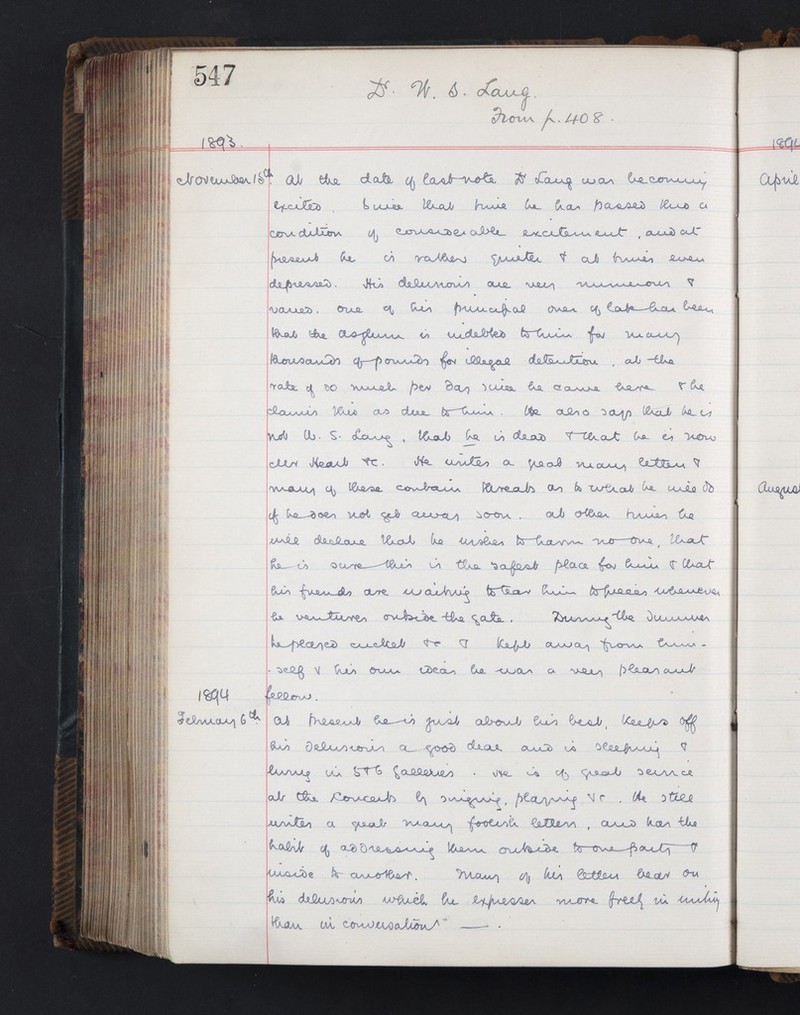 547
Dr. W. S. Lang.
From p. 408.
1893.
November 15th. At the date of last note Dr Lang was becoming
excited. Since that time he has passed thro a
condition of considerable excitement, and at
present he is rather quieter & at times even
depressed. His delusions are very numerous &
varied. One of his principal ones of late has been
that the asylum is indebted to him for many
thousands of pounds for illegal detention, at the
rate of so much per day since he came here & he
claims this as due to him. He also says that he is
not W. S. Lang, that he is dead & that he is now
&c. He writes a great many letters &
many of these contain threats as to what he will do
if he does not get away soon. At other times he
will declare that he wishes to harm no one, that
he is sure this is the safest place for him & that
his friends are waiting to tear him to pieces whenever
he ventures outside the gate. During the Summer
he played cricket &c & kept away from him-
-self & his own ideas he was a very pleasant
1894 fellow.
February 6th At present he is just about his best, keeps off
his delusions a good deal and is sleeping &
living in 5 & 6 galleries. He is of great service
at the Concerts by singing, playing &c. He still
writes a great many foolish letters, and has the
habit of addressing them outside to one party &
inside to another. Many of his letters bear on
his delusions which he expresses more freely in writing
than in conversation —.
1894
April
August